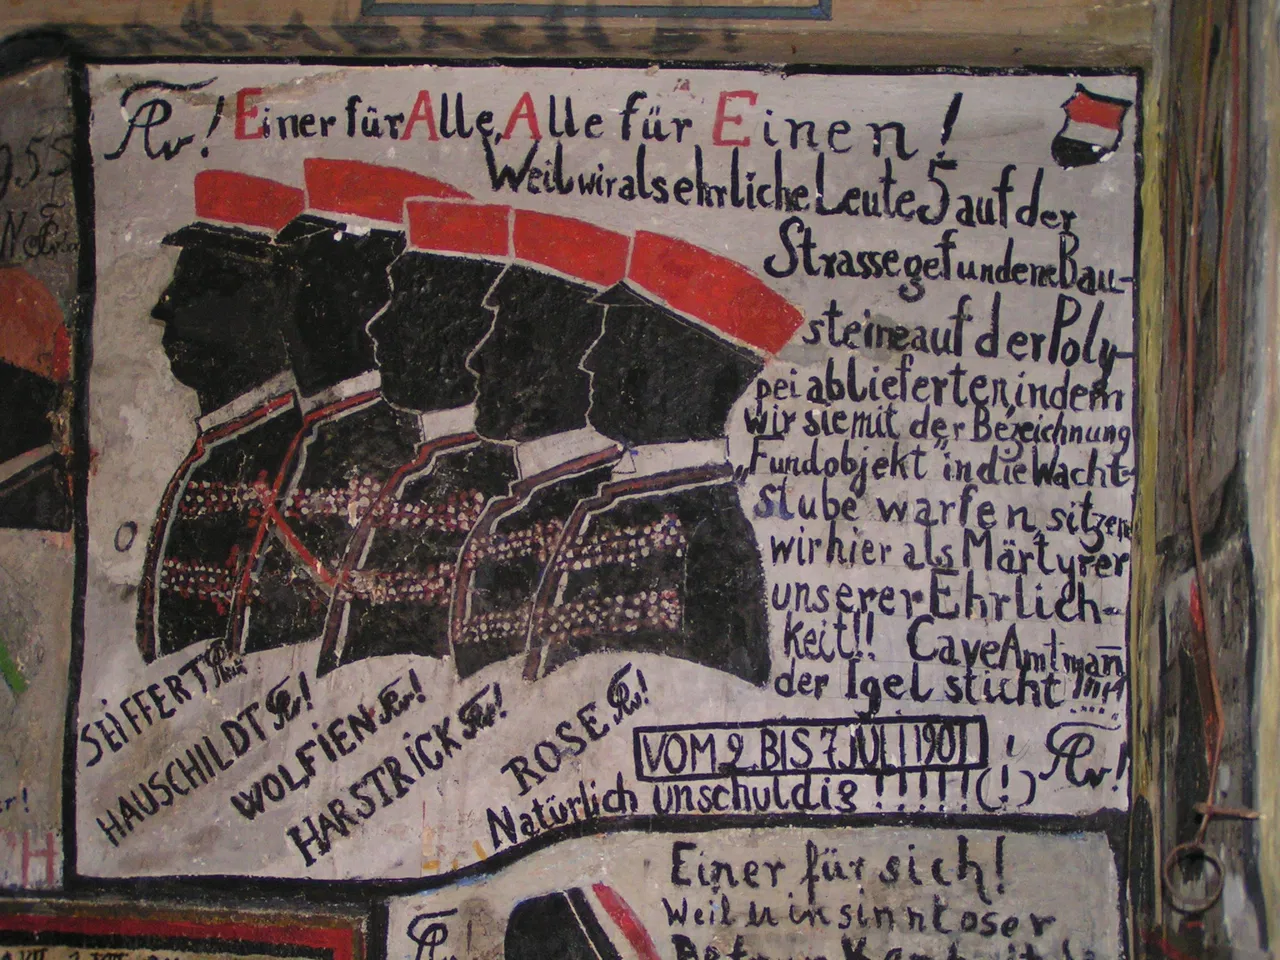 Einer für Alle, Alle für Einen!
Weil wir als ehrliche Leute 5 auf der
Strasse gefundene Bau-
steine auf der Poly-
pei ablieferten, indem
wir sie mit der Bezeichnung
„Fundobjekt" in die Wacht-
stube warfen, sitzen
wir hier als Märtyrer
unserer Ehrlich-
keit!! Cave Amtmañ
der Igel sticht !!!!
SEIFFERT
HAUSCHILDT !
WOLFIEN !
HARSTRICK !
ROSE !
VOM 2. BIS 7 JULI 1901 !
Natürlich unschuldig !!!!!! (!)
Einer für sich!
Weil in sinnloser